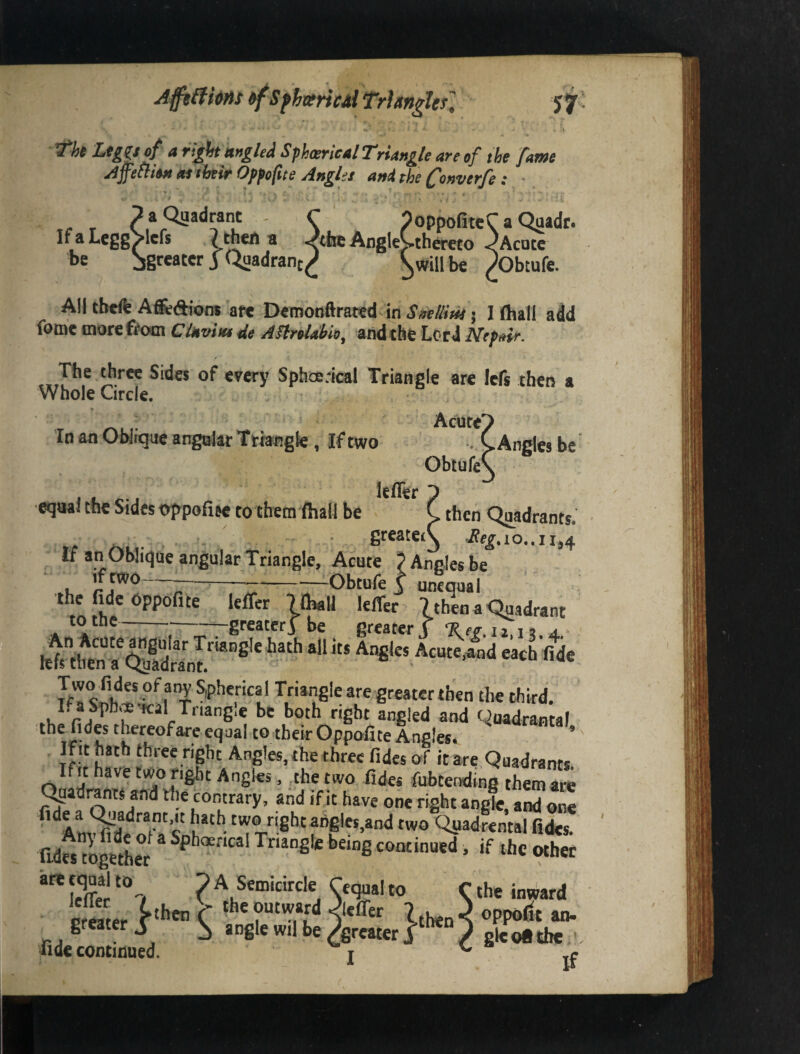 Affections of Sphœrical Triangles. 57
The Leggs of a right angled Sphœrical Triangle are of the same
Affection as their Opposite Angles and the Converse:
If a Legg be } a Quadrant less greater } then a Quadrant { the Angle } opposite thereto will be { a Quadr. Acute Obtuse.
All these Affections are Demonstrated in Snellius; I shall add
some more from Clavius de Astrolabio, and the Lord Nepair.
The three Sides of every Sphœrical Triangle are less then a
Whole Circle.
In an Oblique angular Triangle, If two Acute Obtuse } Angles be
equal the Sides opposite to them shall be lesser greater } then Quadrants.
Reg. 10..11,4
If an Oblique angular Triangle, Acute } Angles be
if two——Obtuse } unequal
the side opposite lesser } shall lesser } then a Quadrant
to the——greater } be greater } Reg. 12, 13. 4.
An Acute angular Triangle hath all its Angles Acute, and each side
less then a Quadrant.
Two sides of any Spherical Triangle are greater then the third.
If a Sphœrical Triangle be both right angled and Quadrantal,
the sides thereof are equal to their Opposite Angles.
If it hath three right Angles, the three sides of it are Quadrants.
If it have two right Angles, the two sides subtending them are
Quadrants and the contrary, and if it have one right angle, and one
side a Quadrant, it hath two right angles, and two Quadrental sides.
Any side of a Sphœrical Triangle being continued, if the other
sides together
are equal to lesser greater } then } A Semicircle the outward angle wil be { equal to lesser greater } then { the inward opposit angle of the
side continued.
I If